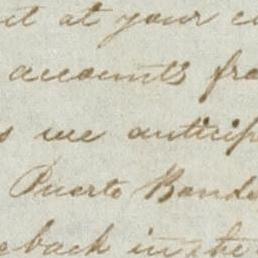 at your
accounts
we anticip
Puerto Bande
back in the